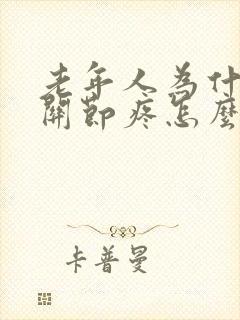 老年人为什
關節疼怎麼
卡普曼